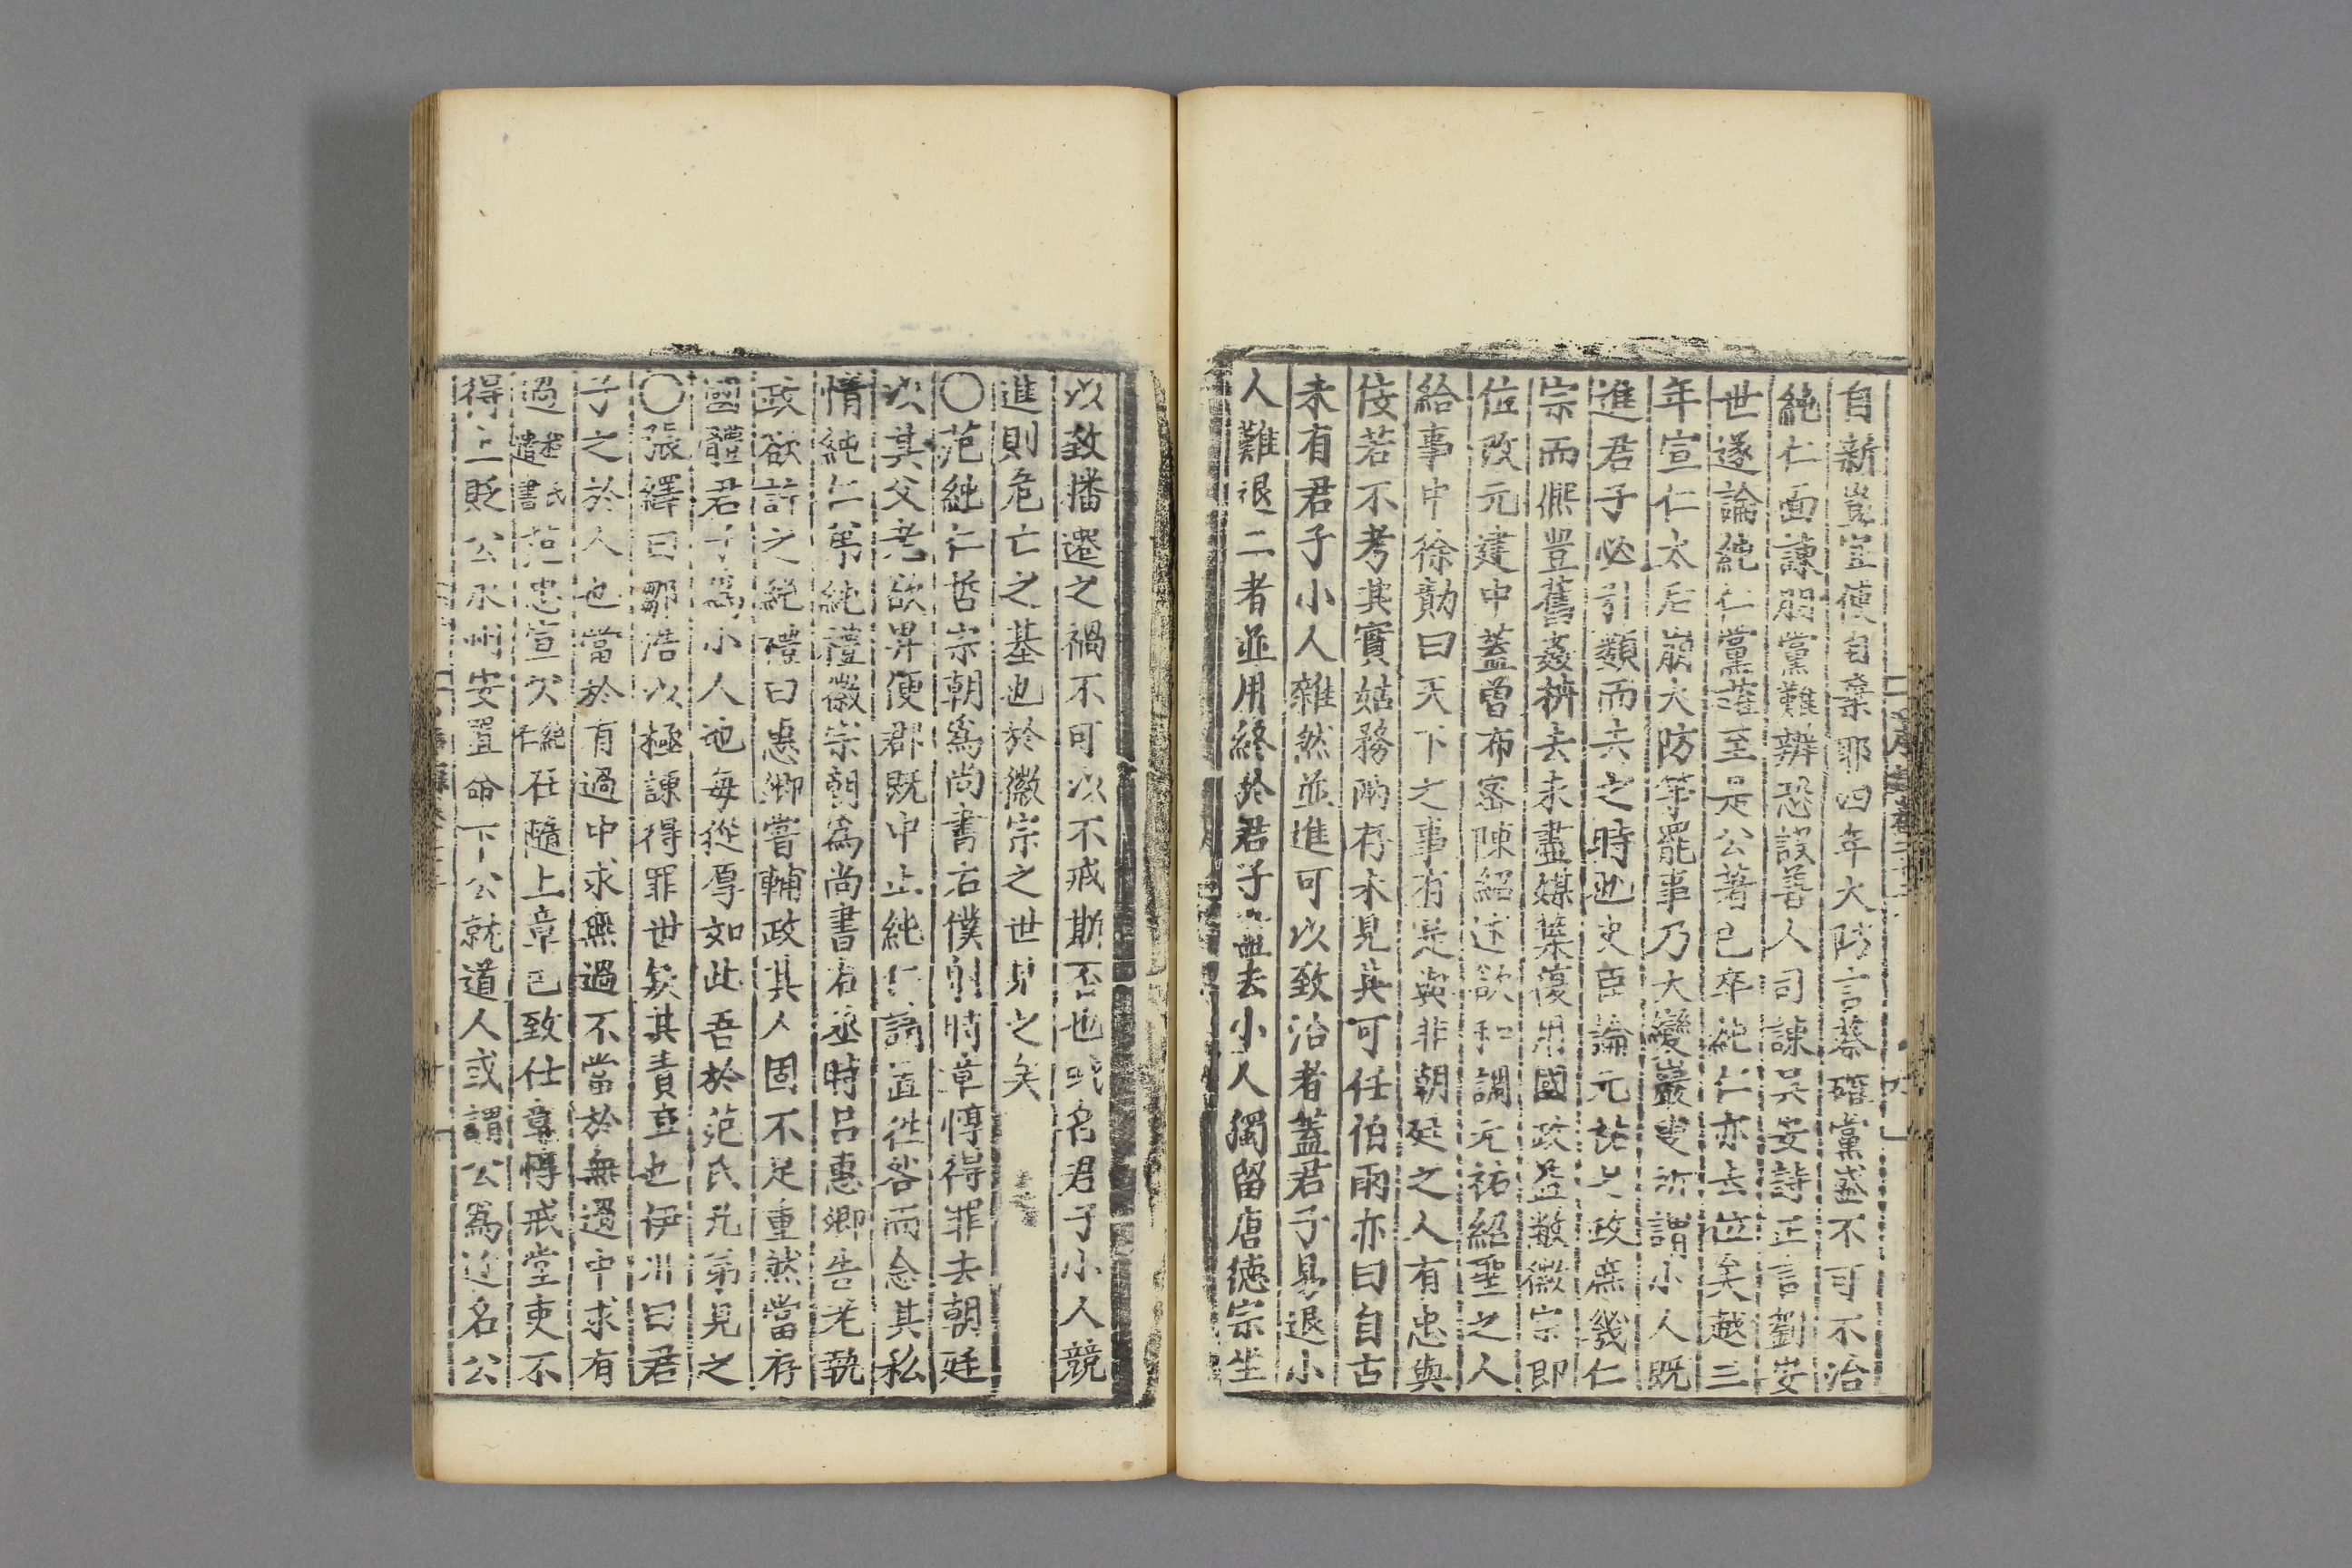 自新豈宜使自棄耶四年大防言蔡確黨盛不可不治
純仁面諫朋黨難辨恐誤善人司諫吳安詩正言劉安
世遂論純仁黨確至是公著已卒純仁亦去位矣越三
年宣仁太后崩大防等罷事乃大變巖叟所謂小人既
進君子必引類而去之時也史臣論元祐之政庶幾仁
宗而熙豐舊姦枿去未盡媒蘖復用國政益敝徽宗即
位改元建中蓋曾布密陳紹述欲和調元祐紹聖之人
給事中徐勣曰天下之事有是與非朝廷之人有忠與
佞若不考其實姑務兩存未見其可任伯雨亦曰自古
未有君子小人雜然並進可以致治者蓋君子易退小
人難退二者並用終於君子盡去小人獨留唐德宗坐
以致播遷之禍不可以不戒斯否也或名君子小人競
進則危亡之基也於徽宗之世見之矣
〇范純仁哲宗朝爲尚書右僕射時章惇得罪去朝廷
以其父老欲畀便郡既中止純仁請置往咎而念其私
情純仁弟純禮徽宗朝爲尚書右丞時呂惠卿告老執
政欲許之純禮曰惠卿嘗輔政其人固不足重然當存
國體君子爲小人也每從厚如此吾於范氏兄弟見之
〇張繹曰鄒浩以極諫得罪世疑其責直也伊川曰君
子之於人也當於有過中求無過不當於無過中求有
過程氏遺書范忠宣公純仁在隨上章已致仕章惇戒堂吏不
得上貶公永州安置命下公就道人或謂公爲近名公